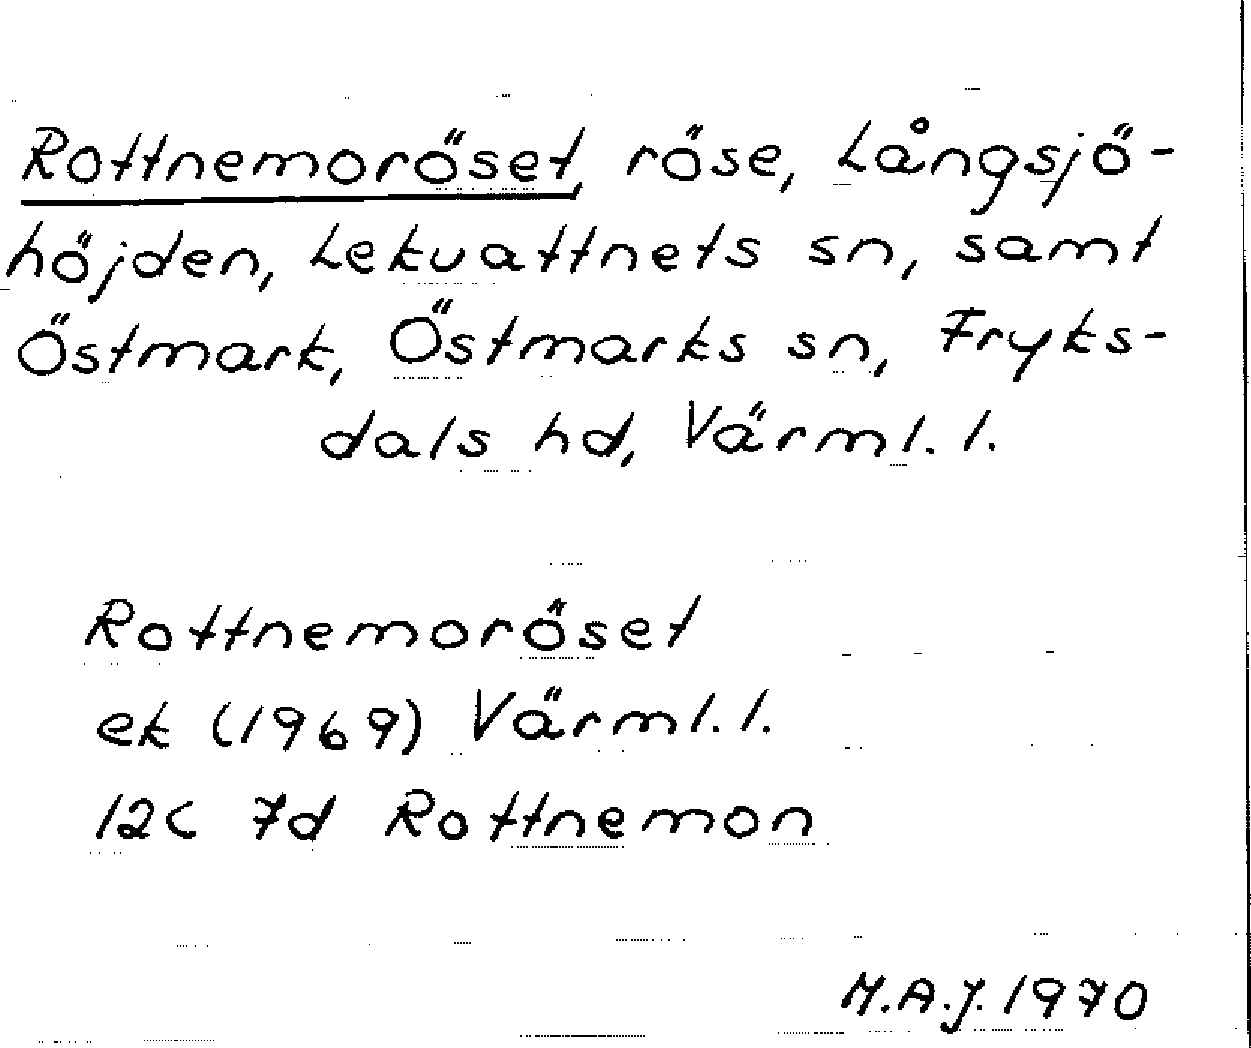 Rottnemoröset, röse, Långsjö-
höjden, Lekvattnets sn, samt
Östmark, Östmarks sn, Fryks-
dals hd, Värml. l.
Rottnemoröset
ek (1969) Värml. l.
12C 7d Rottnemon
M.A.J. 1970